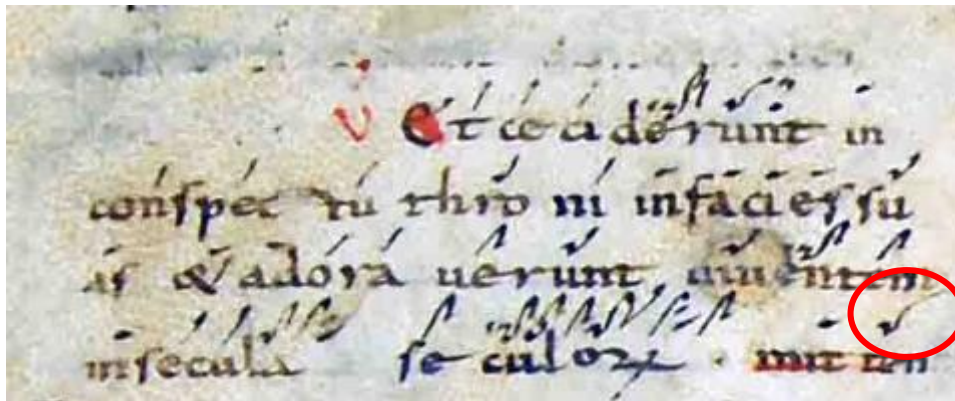 v Et ceciderunt in
conspec tu thro ni infacies su
as & adora uerunt uiuentem
insecula se culorꝝ . mit ten